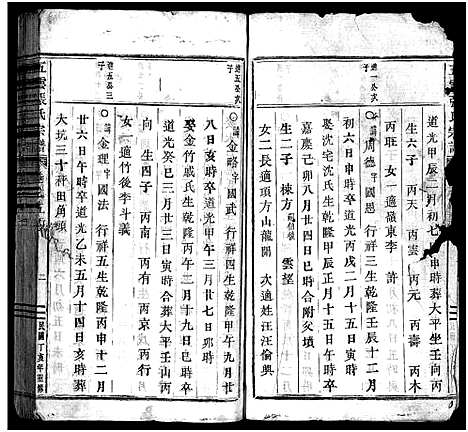 道光甲辰二月初七 申時葬大平坐壬向丙
生六子 丙天 丙雲 丙元 丙壽 丙木
丙旺 女一適嚴東李 許
進一公次子
諱周德字國恩 行祥三生乾隆壬辰十二月
初六日午時卒道光丙戌二月十五日寅時
娶沈宅沈氏生乾隆甲辰正月十五日寅時卒
嘉慶己卯八月廿四日巳時合附父墳
生二子 棟方 雲㙮
女二長適項方山龍開 次適姓汪汪倫奧
進五公次子
諱金略字國武 行祥四生乾隆甲午九月廿
八日亥時卒道光甲午三月廿七日卯時
娶金竹戚氏生乾隆丙午二月十九日巳時卒
道光癸巳三月廿三日寅時合葬太平壬山丙
向 生四子 丙南 丙有 丙京 丙行
女一適竹後李斗義
進五公三子
諱金理字國法 行祥五生乾隆丙申十二月
廿六日午時卒道光乙未五月十四日亥時葬
大坑三十秤田角頭
五雲張氏宗譜
二
民國丁亥年重修